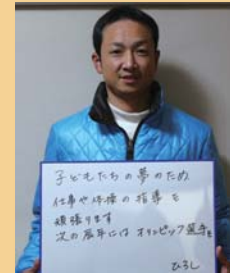 子どもたちの夢のため
仕事や体操の指導を
頑張ります
次の辰年にはオリンピック選手を
ひろし